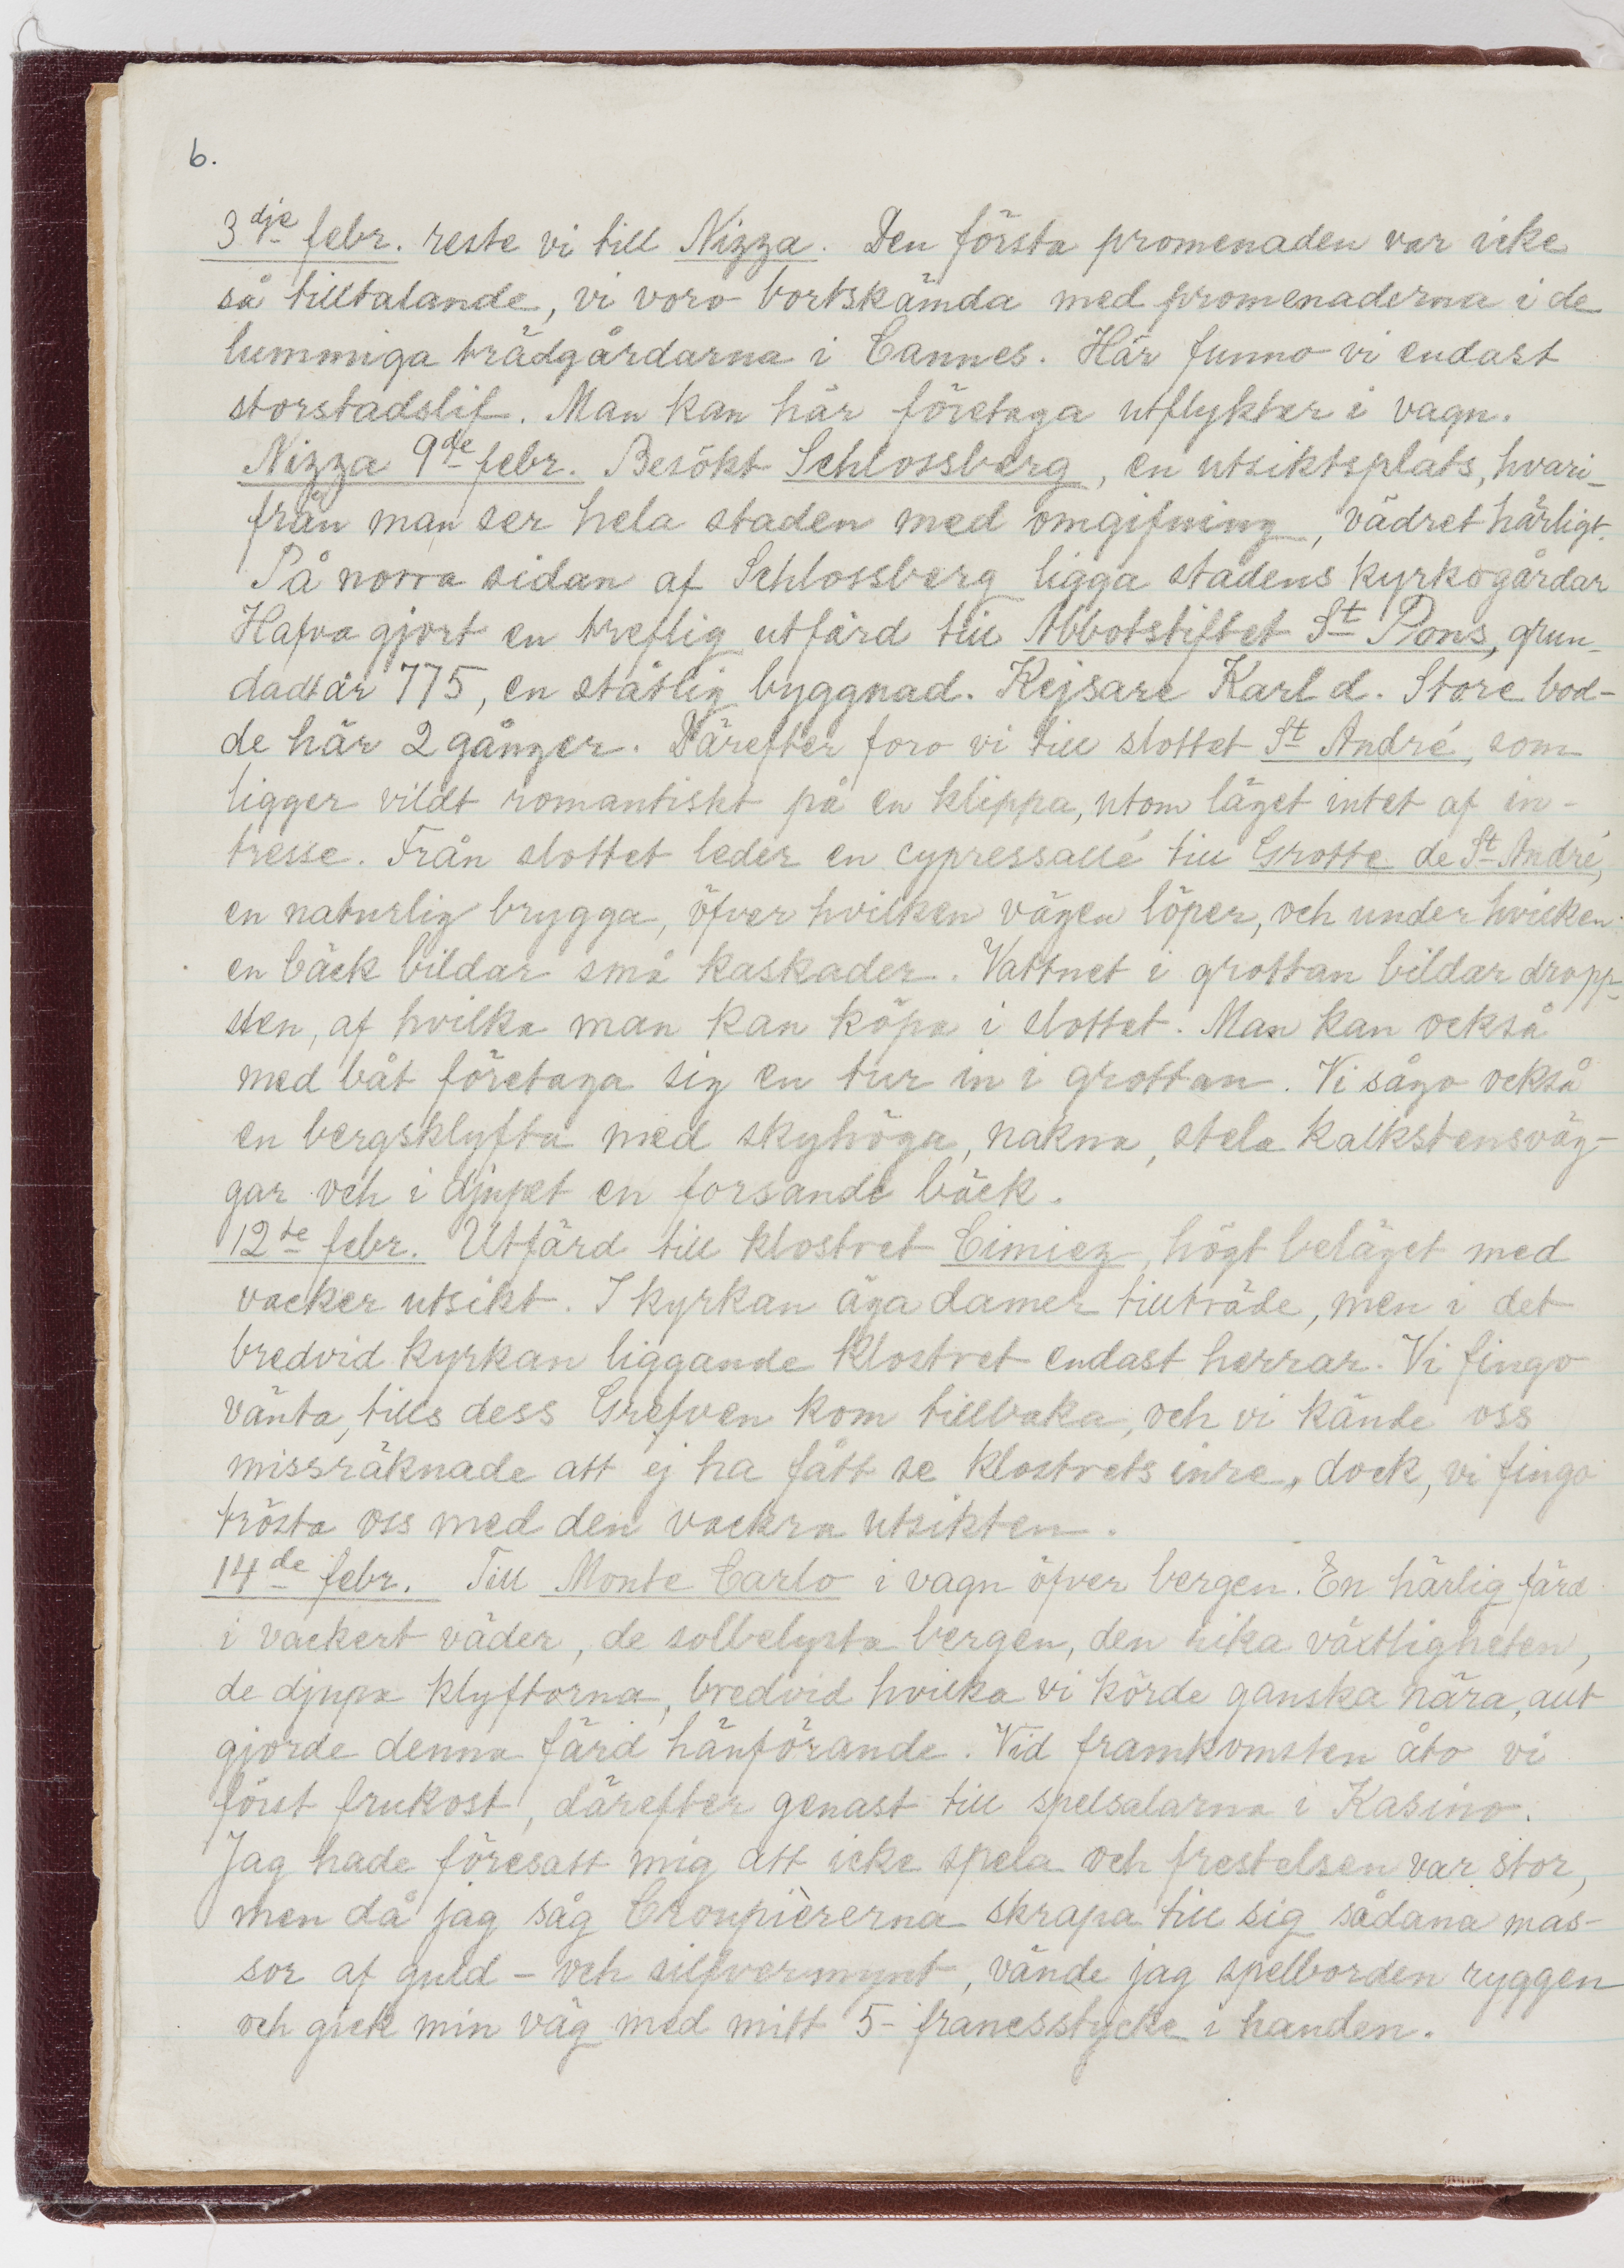 6.
3dje febr. reste vi till Nizza. Den första promenaden var icke
så tilltalande, vi voro bortskämda med promenaderna i de
lummiga trädgårdarna i Cannes. Här funno vi endast
storstadslif. Man kan här företaga utflykter i vagn.
Nizza 9de febr. Besökt Schlossberg, en utsiktsplats, hvari-
från man ser hela staden med omgifning, vädret härligt.
På norra sidan af Schlossberg ligga stadens kyrkogårdar
Hafva gjort en treflig utfärd till Abbotstiftet St Pons, grun-
dadt år 775, en ståtlig byggnad. Kejsare Karl d. Store bod-
de här 2 gånger. Därefter foro vi till slottet St André, som
ligger vildt romantiskt på en klippa, utom läget intet af in-
tresse. Från slottet leder en cypressallé till Grotte de St André,
en naturlig brygga, öfver hvilken vägen löper, och under hvilken
en bäck bildar små kaskader. Vattnet i grottan bildar dropp-
sten, af hvilka man kan köpa i slottet. Man kan också
med båt företaga sig en tur in i grottan. Vi sågo också
en bergsklyfta med skyhöga, nakna, stela kalkstensväg-
gar och i djupet en forsande bäck.
12te febr. Utfärd till klostret Cimiez, högt beläget med
vacker utsikt. I kyrkan äga damer tillträde, men i det
bredvid kyrkan liggande klostret endast herrar. Vi fingo
vänta, tills dess Grefven kom tillbaka, och vi kände oss
missräknade att ej ha fått se klostrets inre, dock, vi fingo
trösta oss med den vackra utsikten.
14de febr. Till Monte Carlo i vagn öfver bergen. En härlig färd
i vackert väder, de solbelysta bergen, den rika växtligheten,
de djupa klyftorna, bredvid hvilka vi körde ganska nära, allt
gjorde denna färd hänförande. Vid framkomsten åto vi
först frukost, därefter genast till spelsalarna i Kasino.
Jag hade föresatt mig att icke spela och frestelsen var stor,
men då jag såg Croupièrerna skrapa till sig sådana mas-
sor af guld- och silfvermynt, vände jag spelborden ryggen
och gick min väg med mitt 5-francsstycke i handen.